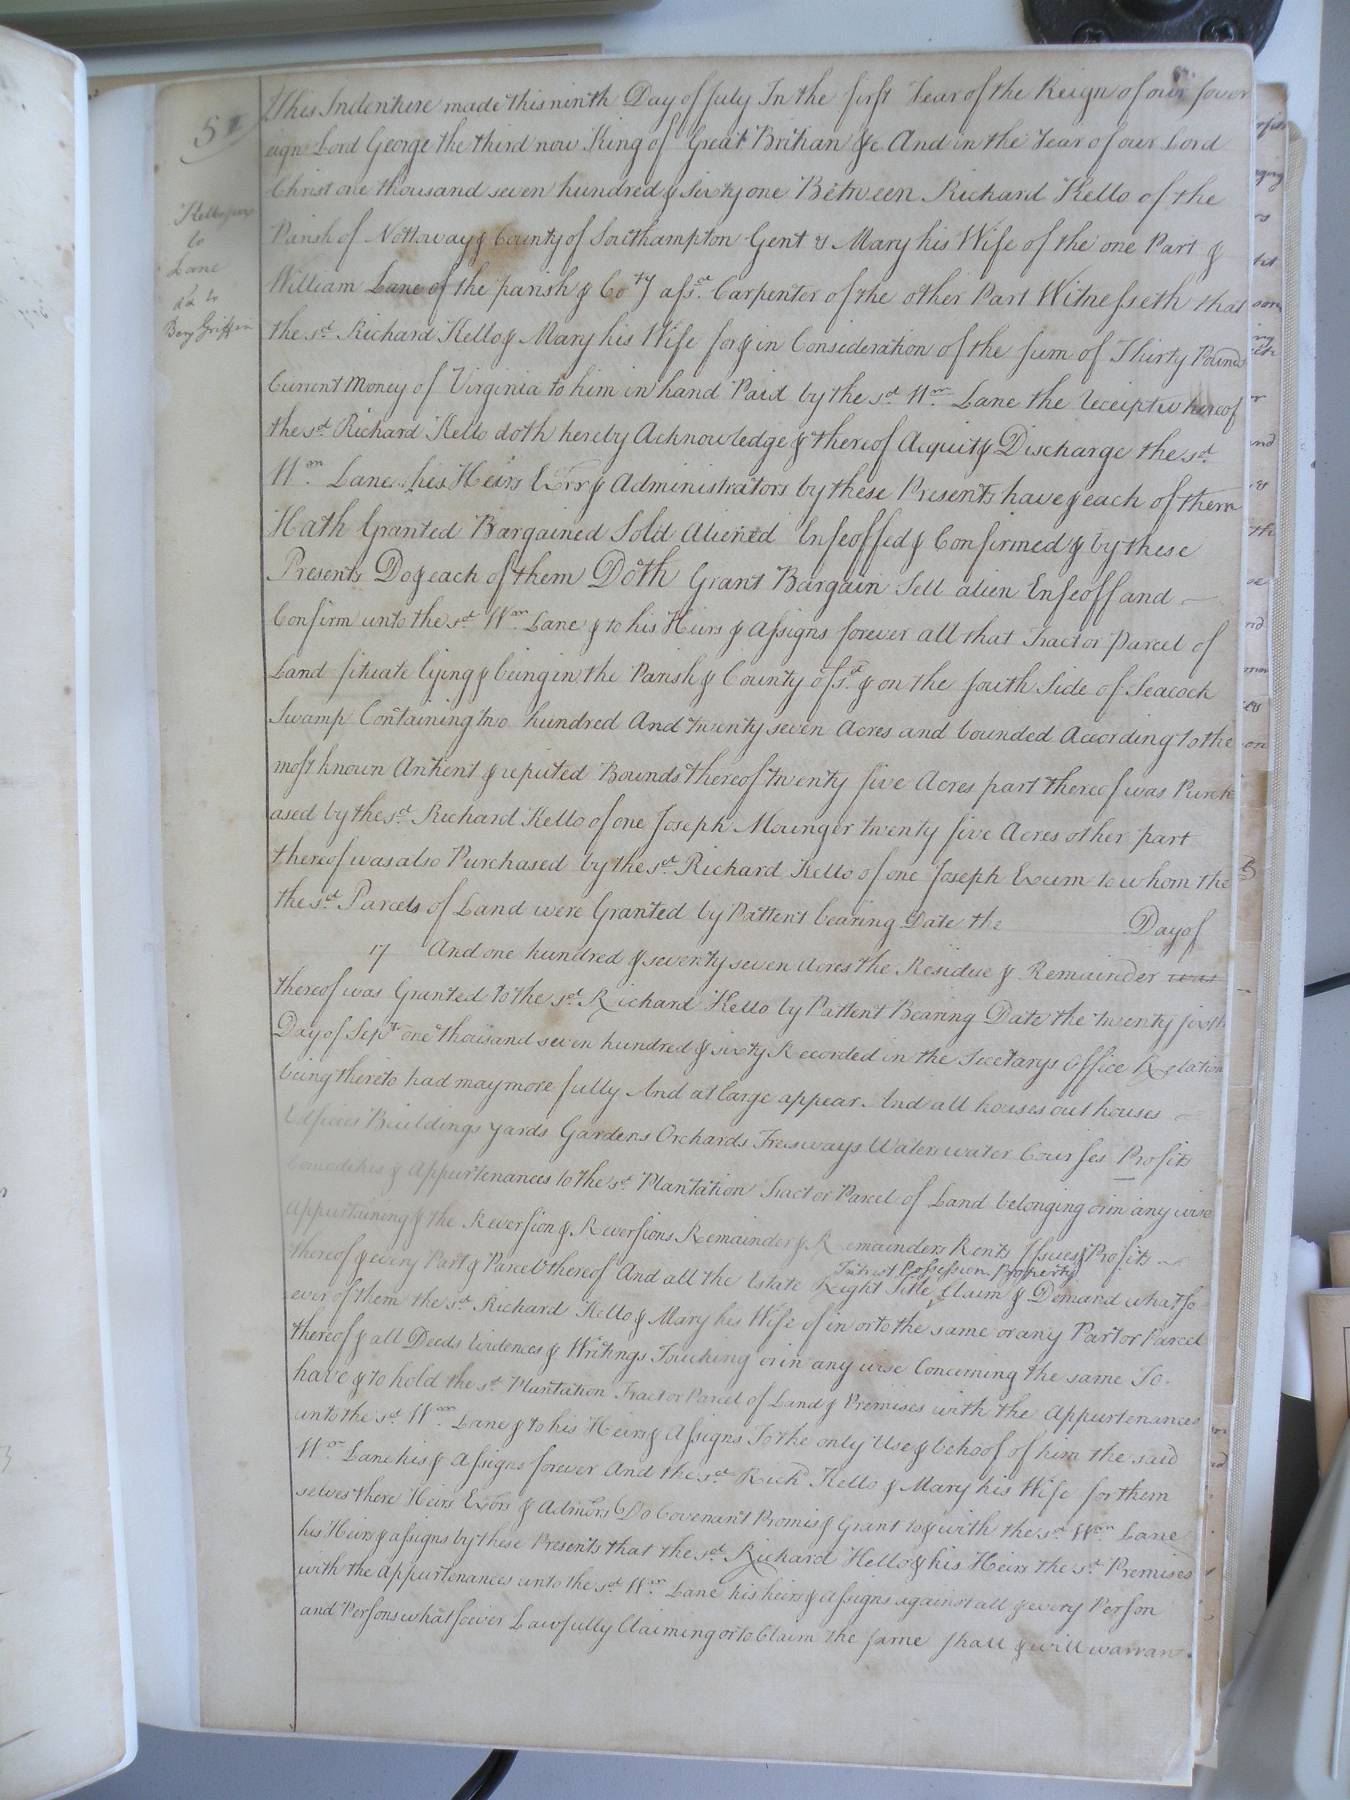 51
Kello &ux
to
Lane
d'd to
Benj Griffin
This Indenture made this ninth Day of July In the first Year of the Reign of our sover
eign Lord George the third now King of Great Britian &c And in the Year of our Lord
Christ one thousand seven hundred & Sixty one Between Richard Kello of the
Parish of Nottoway & County of Southampton Gent & Mary his Wife of the one Part &
William Lane of the parish & Coty afsd. Carpenter of the other Part Witnesseth that
the sd. Richard Kello & Mary his Wife for & in Consideration of the sum of Thirty Pounds
Current Money of Virginia to him in hand Paid by the sd. Wm. Lane the receipt whereof
the sd. Richard Kello doth hereby Acknowledge & thereof Acquit & Discharge the sd.
Wm. Lane his Heirs Exrr & Administrators by these Presents have & each of them
Hath Granted Bargained Sold Aliened Enfeoffed & Confirmed & by these
Presents Do & each of them Doth Grant Bargain Sell alien Enfeoff and
Confirm unto the sd. Wm. Lane & to his Heirs & Assigns forever all that Tract or Parcel of
Land situate lying & being in the Parish & County afsd. & on the south Side of Seacock
Swamp Containing two hundred And twenty seven Acres and bounded According to the
most known Antient & reputed Bounds thereof twenty five Acres part thereof was Purch
ased by the sd. Richard Kello of one Joseph Mounger twenty five Acres other part
thereof was also Purchased by the sd. Richard Kello of one Joseph Exum to whom the
the sd. Parcels of Land were Granted by Pattent bearing Date the Day of
17 And one hundred & seventy seven acres the Residue & Remainder was
thereof was Granted to the sd. Richard Kello by Pattent Bearing Date the twenty sixth
Day of Sept. one thousand seven hundred & sixty Recorded in the Secetarys Office Relation
being thereto had may more fully And at large appear. And all houses out houses
Edifices Buildings yards Gardens Orchards Trees ways Waters water Courses Profits
Comodities & Appurtenances to the sd. Plantation Tract or Parcel of Land belonging or in any wise
appurtaining & the Reversion & Reversions Remainder & Remainders Rents Issues & Profits
thereof & every Part & Parcel thereof And all the Estate Right Title Claim & Demand whatso
Intrest Possession Property
ever of them the sd. Richard Kello & Mary his Wife of in or to the same or any Part or Parcel
thereof & all Deeds Evidences & Writings Touching or in any wise Concerning the same To
have & to hold the sd. Plantation Tract or Parcel of Land & Premises with the Appurtenances
unto the sd. Wm. Lane & to his Heirs & Assigns To the only Use & behoof of him the said
Wm. Lane his & Assigns forever And the sd. Richd Kello & Mary his Wife for them
selves there Heirs Exors & Admors Do Covenant Promis & Grant to & with the sd. Wm. Lane
his Heirs & assigns by these Presents that the sd. Richard Kello & his Heirs the sd. Premises
with the Appurtenances unto the sd. Wm. Lane his heirs & Assigns against all & every Person
and Persons whatsoever Lawfully Claiming or to Claim the same shall & will warran